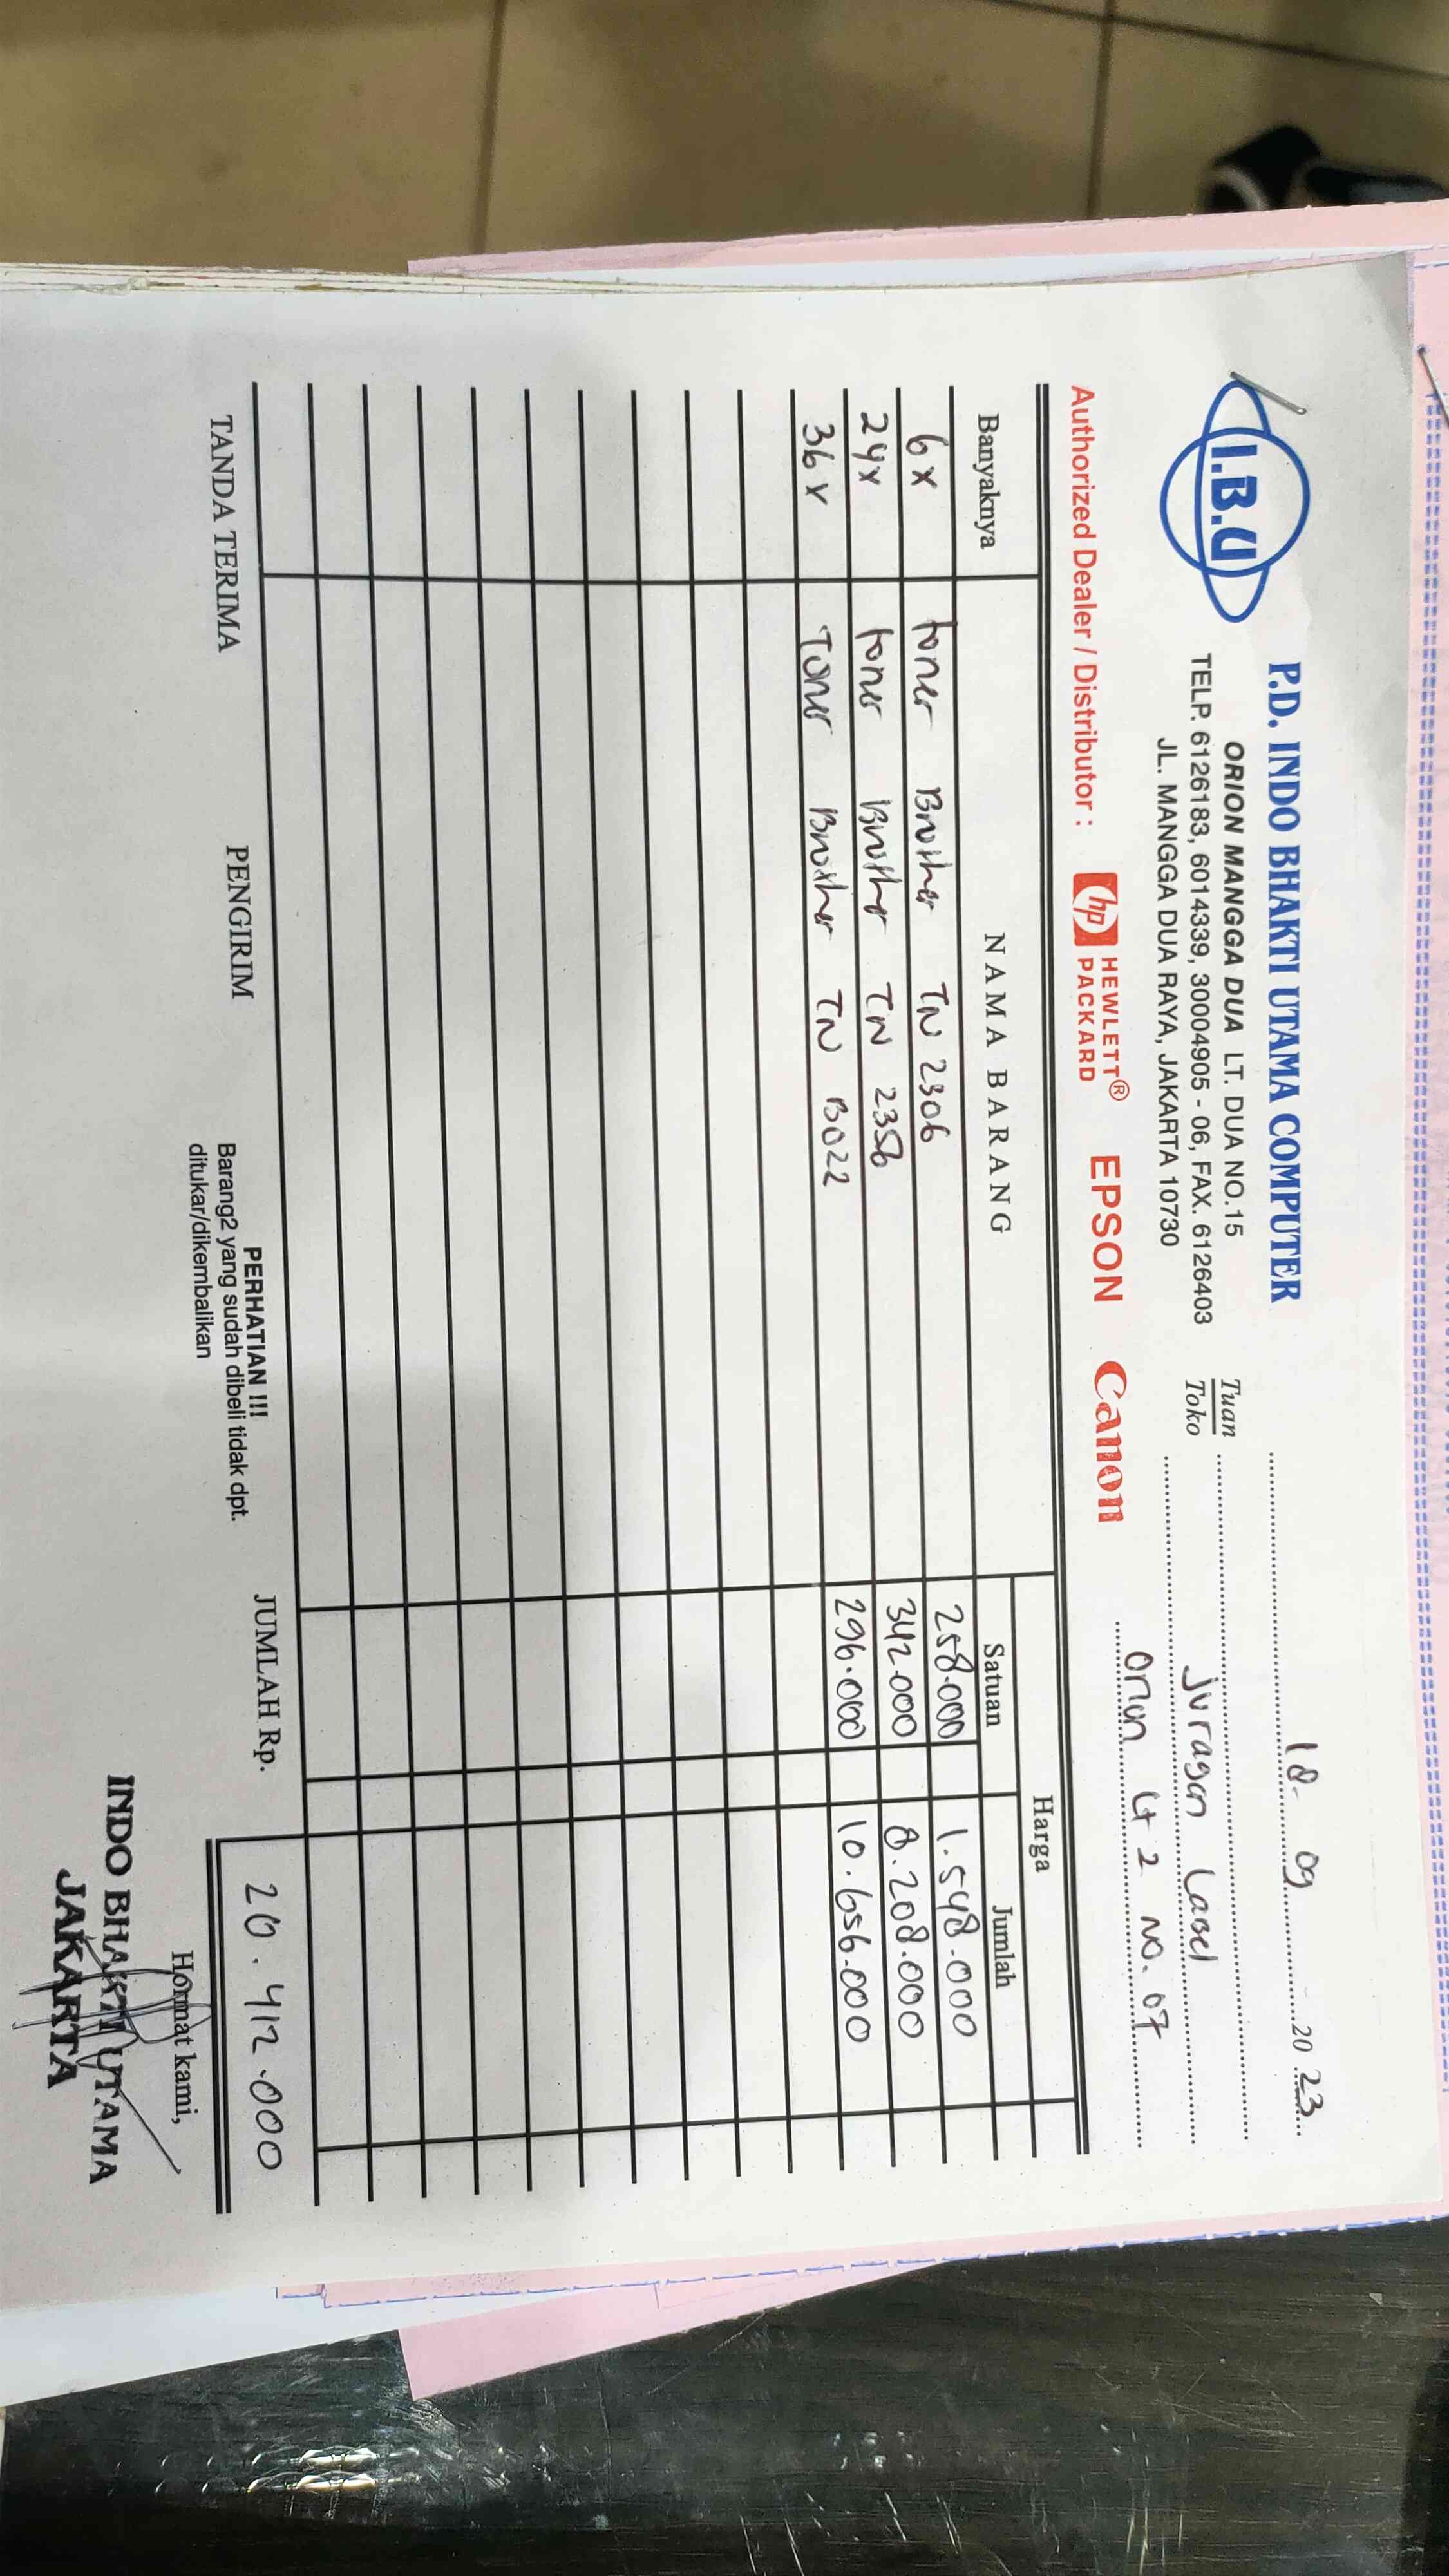 I.B.U
P.D. INDO BHAKTI UTAMA COMPUTER
ORION MANGGA DUA LT. DUA NO.15
TELP. 6126183, 6014339, 30004905 - 06, FAX. 6126403
JL. MANGGA DUA RAYA, JAKARTA 10730
18 - 09 - 20 23
Tuan
Toko
Juragan Label
Orion Lt 2 No. 07
Authorized Dealer / Distributor : hp HEWLETT® PACKARD EPSON Canon
Banyaknya NAMA BARANG Harga
Satuan Jumlah
6x toner Brother TN 2306 258.000 1.548.000
24x toner Brother TN 2356 342.000 8.208.000
36x Toner Brother TN B022 296.000 10.656.000
TANDA TERIMA PENGIRIM JUMLAH Rp. 20.412.000
PERHATIAN !!!
Barang2 yang sudah dibeli tidak dpt.
ditukar/dikembalikan
Hormat kami,
INDO BHAKTI UTAMA
JAKARTA